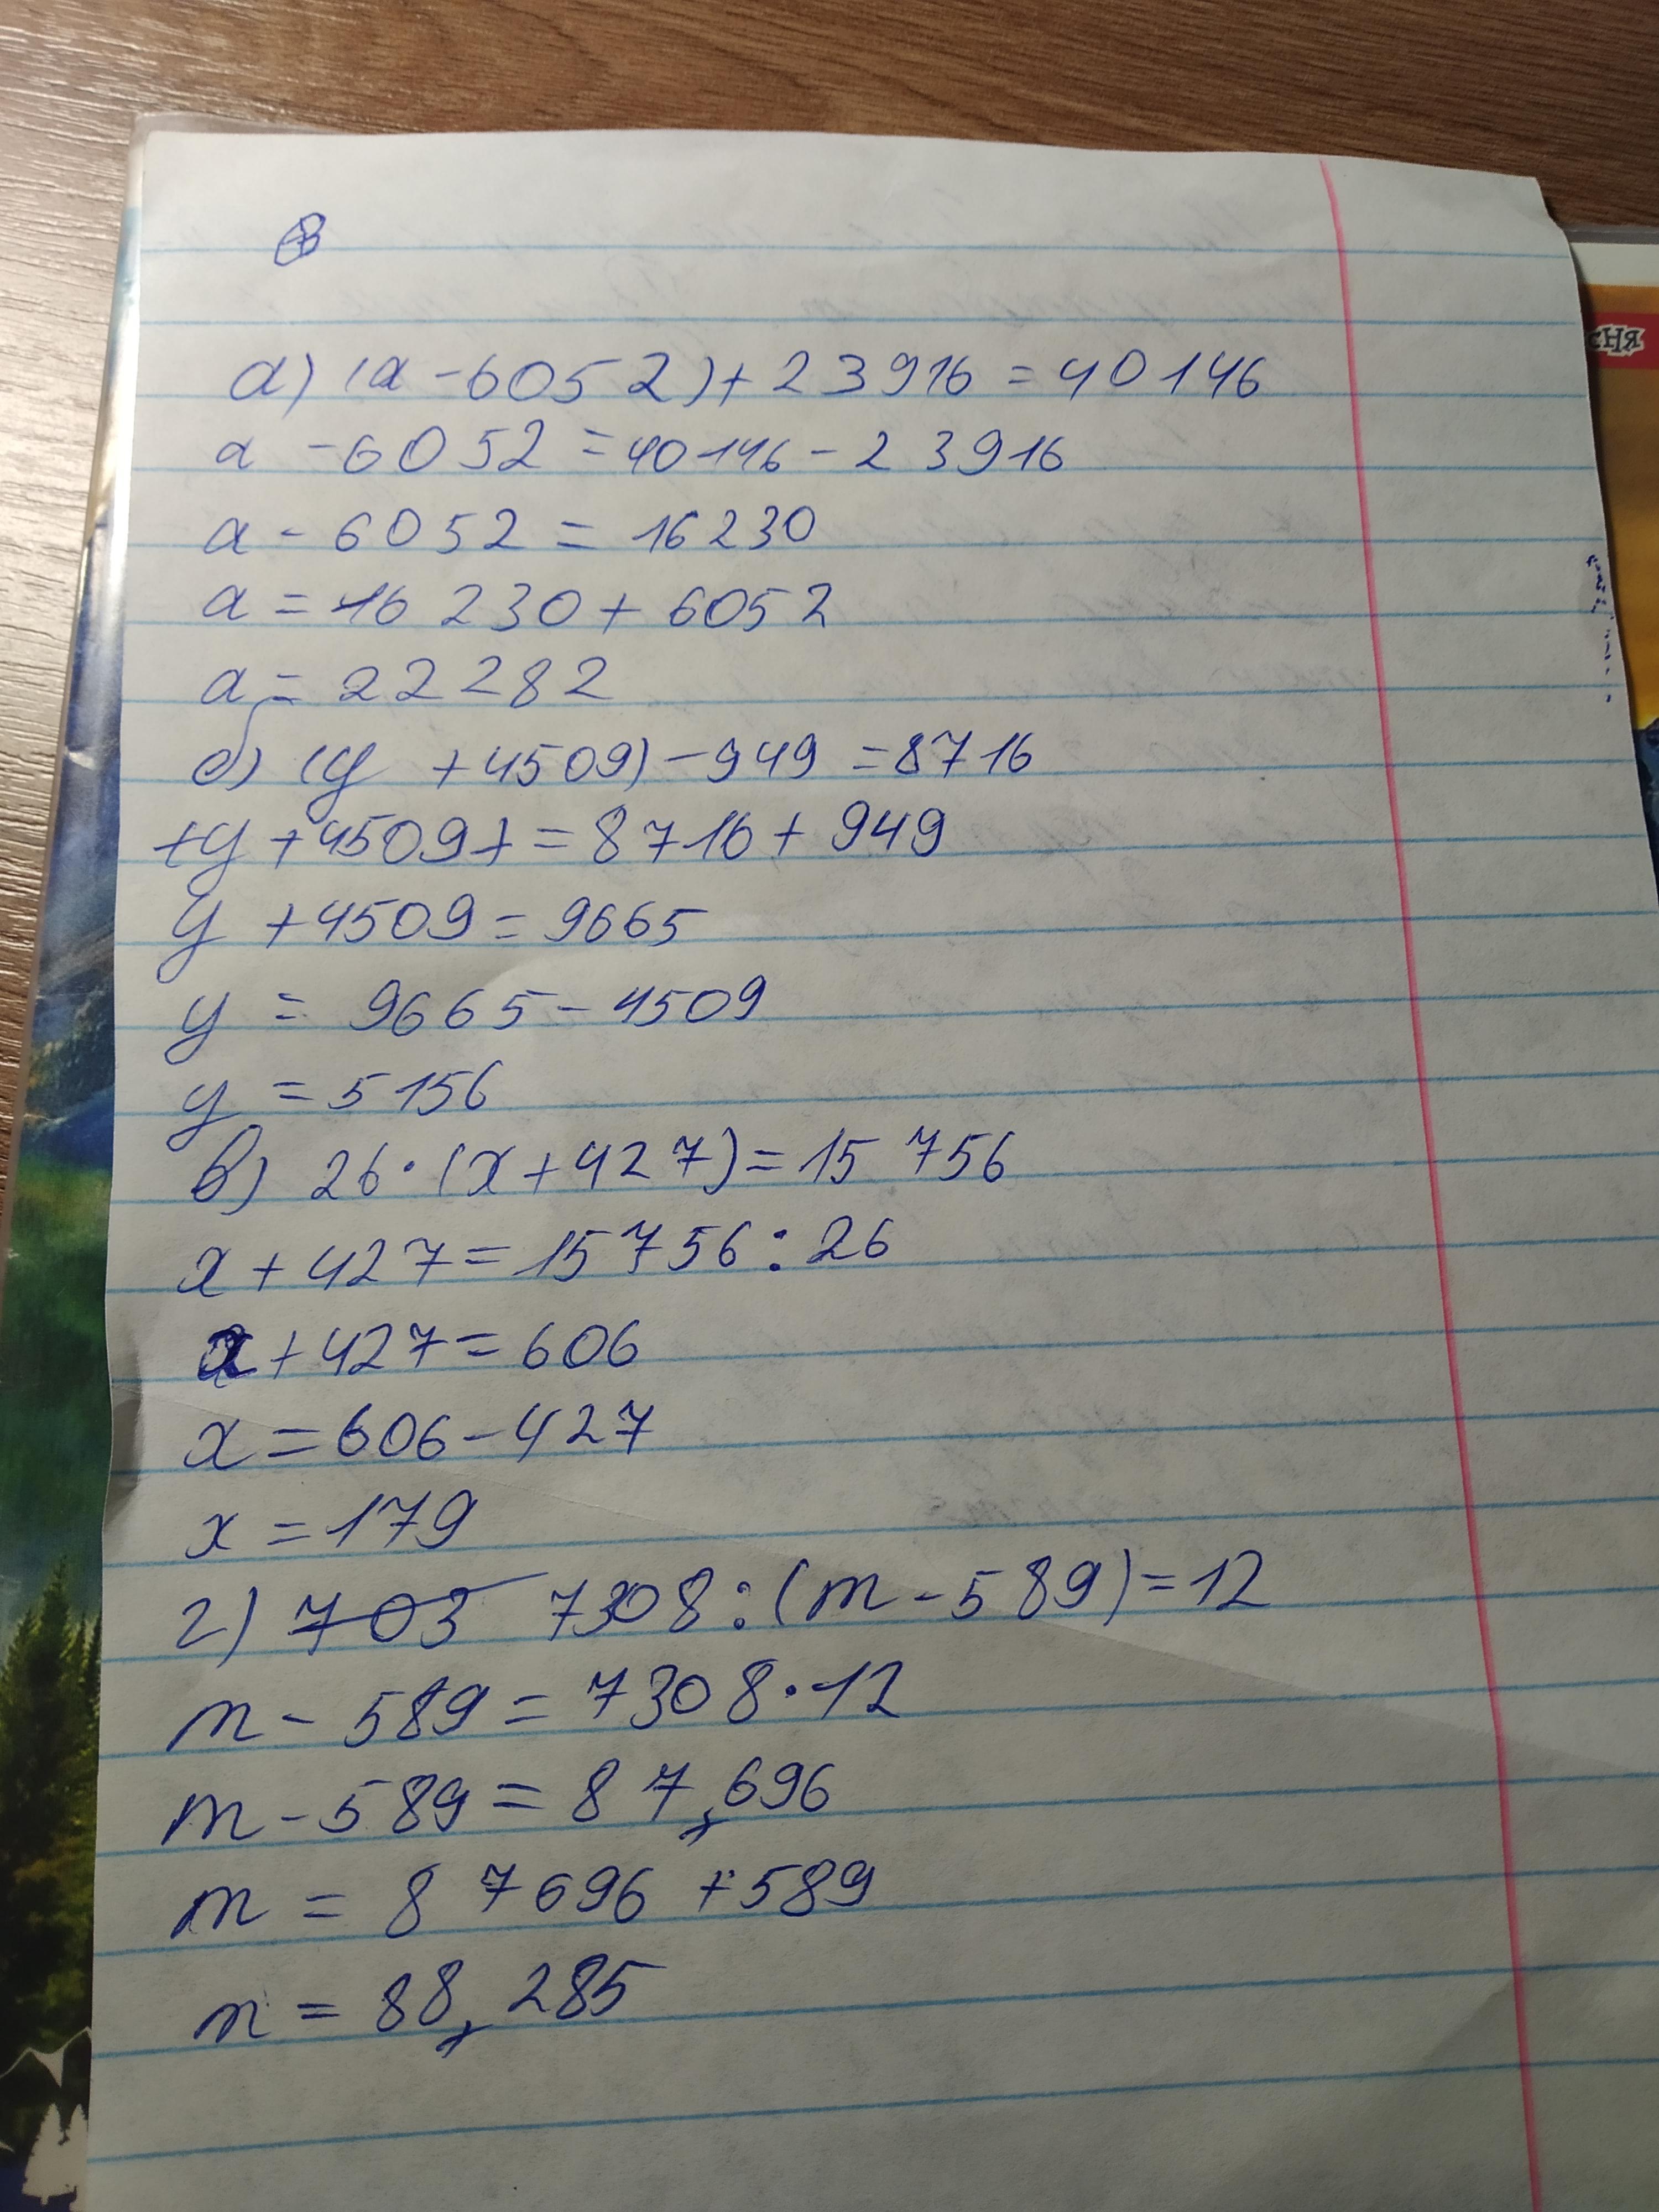 а) (а - 6052) + 23916 = 40146
а - 6052 = 40146 - 23916
а - 6052 = 16230
а = 16 230 + 6052
а = 22 282
б) (у + 4509) - 949 = 8716
+у + 4509+ = 8716 + 949
у + 4509 = 9665
у = 9665 - 4509
у = 5156
в) 26 · (х + 427) = 15 756
х + 427 = 15 756 : 26
х + 427 = 606
х = 606 - 427
х = 179
г) 703 7308 : (m - 589) = 12
m - 589 = 7308 · 12
m - 589 = 87,696
m = 87696 + 589
m = 88,285